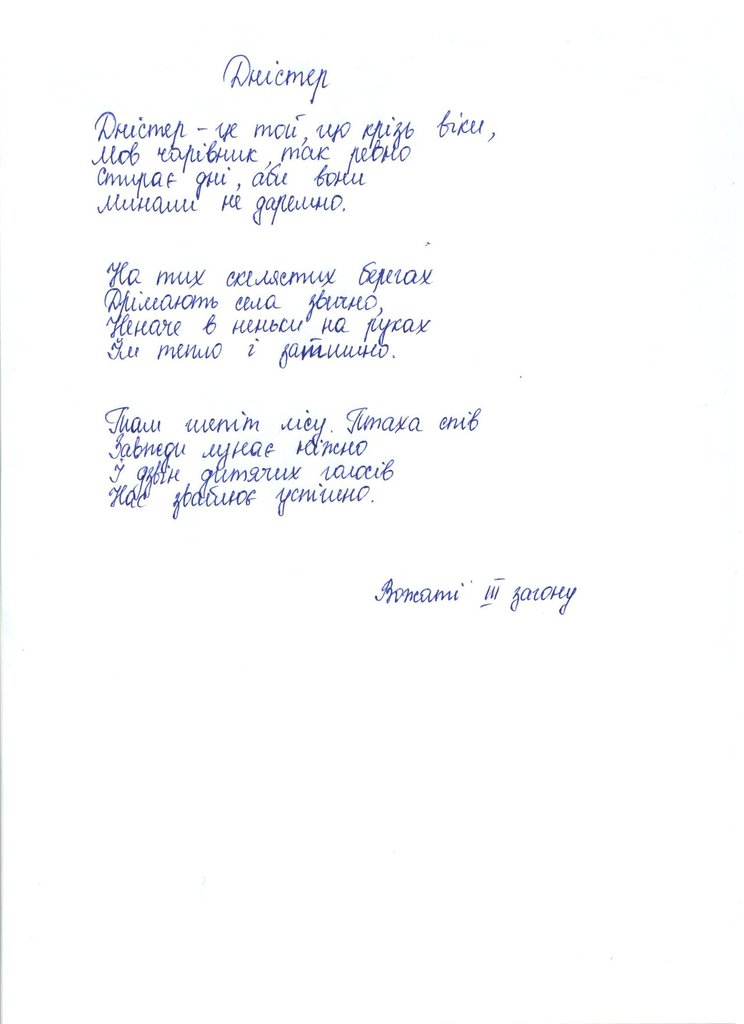 Дністер
Дністер - це той, що крізь віки,
Мов чарівник, так ревно
Стирає дні, аби вони
Минали не даремно.
На тих скелястих берегах
Дрімають села звично,
Неначе в неньки на руках
Їм тепло і затишно.
Там шепіт лісу. Птаха спів
Завжди лунає ніжно
І дзвін дитячих голосів
Нас зваблює успішно.
Вожаті III загону